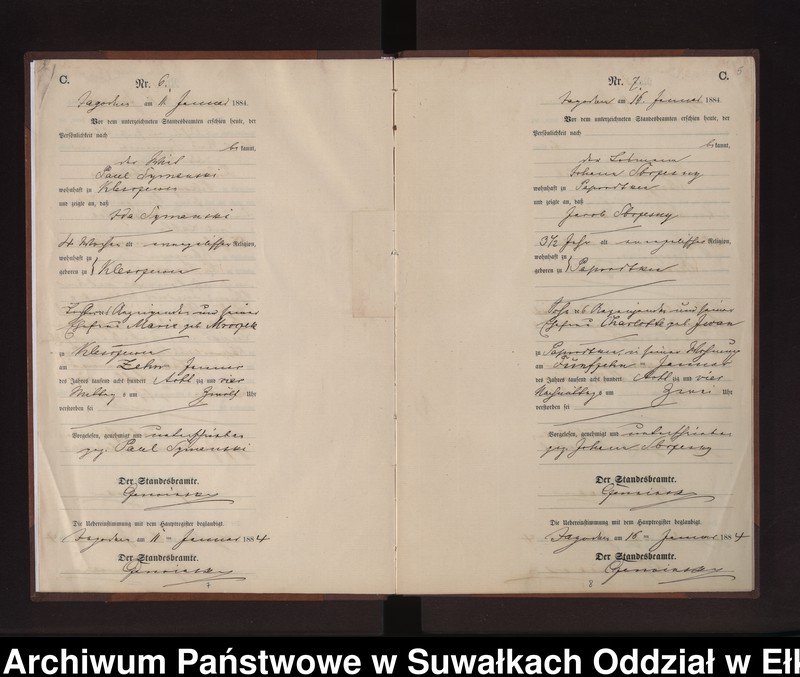 C.
Nr. 6.
Jagodnen am 11 Januar 1884.
Vor dem unterzeichneten Standesbeamten erschien heute, der
Persönlichkeit nach
bekannt,
der Wirt
Paul Symanski
wohnhaft zu
und zeigte an, daß
Ida Symanski
4 Wochen alt evangelischer Religion,
wohnhaft zu
geboren zu
Tochter des Anzeigenden und seiner
Ehefrau Marie geb
zu
am Zehn Januar
des Jahres tausend acht hundert Acht zig und vier
Mittag s um Zwölf Uhr
verstorben sei
Vorgelesen, genehmigt und unterschrieben
gez. Paul Symanski
Der Standesbeamte.
Die Uebereinstimmung mit dem Hauptregister beglaubigt.
Jagodnen am 11 ten Januar 1884
Der Standesbeamte.
7
C.
Nr. 7.
Jagodnen am 16 Januar 1884.
Vor dem unterzeichneten Standesbeamten erschien heute, der
Persönlichkeit nach
bekannt,
der Losmann
Johann
wohnhaft zu Paprodtken
und zeigte an, daß
Jacob
3 1/2 Jahr alt evangelischer Religion,
wohnhaft zu
geboren zu Paprodtken
Sohn des Anzeigenden und seiner
Ehefrau Charlotte geb Jwan
zu Paprodtken in seiner Wohnung
am Fünfzehn ten Januar
des Jahres tausend acht hundert Acht zig und vier
Nachmittag s um Uhr
verstorben sei
Vorgelesen, genehmigt und unterschrieben
gez Johann
Der Standesbeamte.
Die Uebereinstimmung mit dem Hauptregister beglaubigt.
Jagodnen am 16 ten Januar 1884
Der Standesbeamte.
8
Archiwum Państwowe w Suwałkach Oddział w Ełk